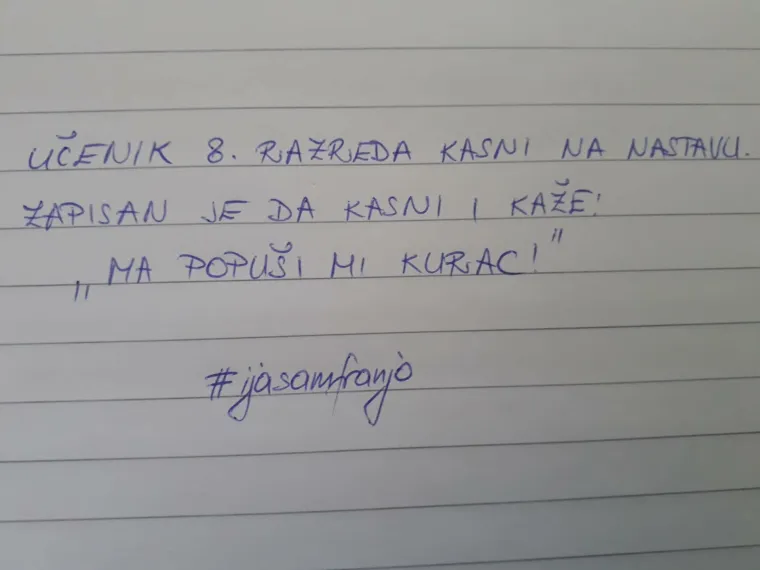 UČENIK 8. RAZREDA KASNI NA NASTAVU.
ZAPISAN JE DA KASNI I KAŽE:
„MA POPUŠI MI KURAC!"
#ijasamfranjo